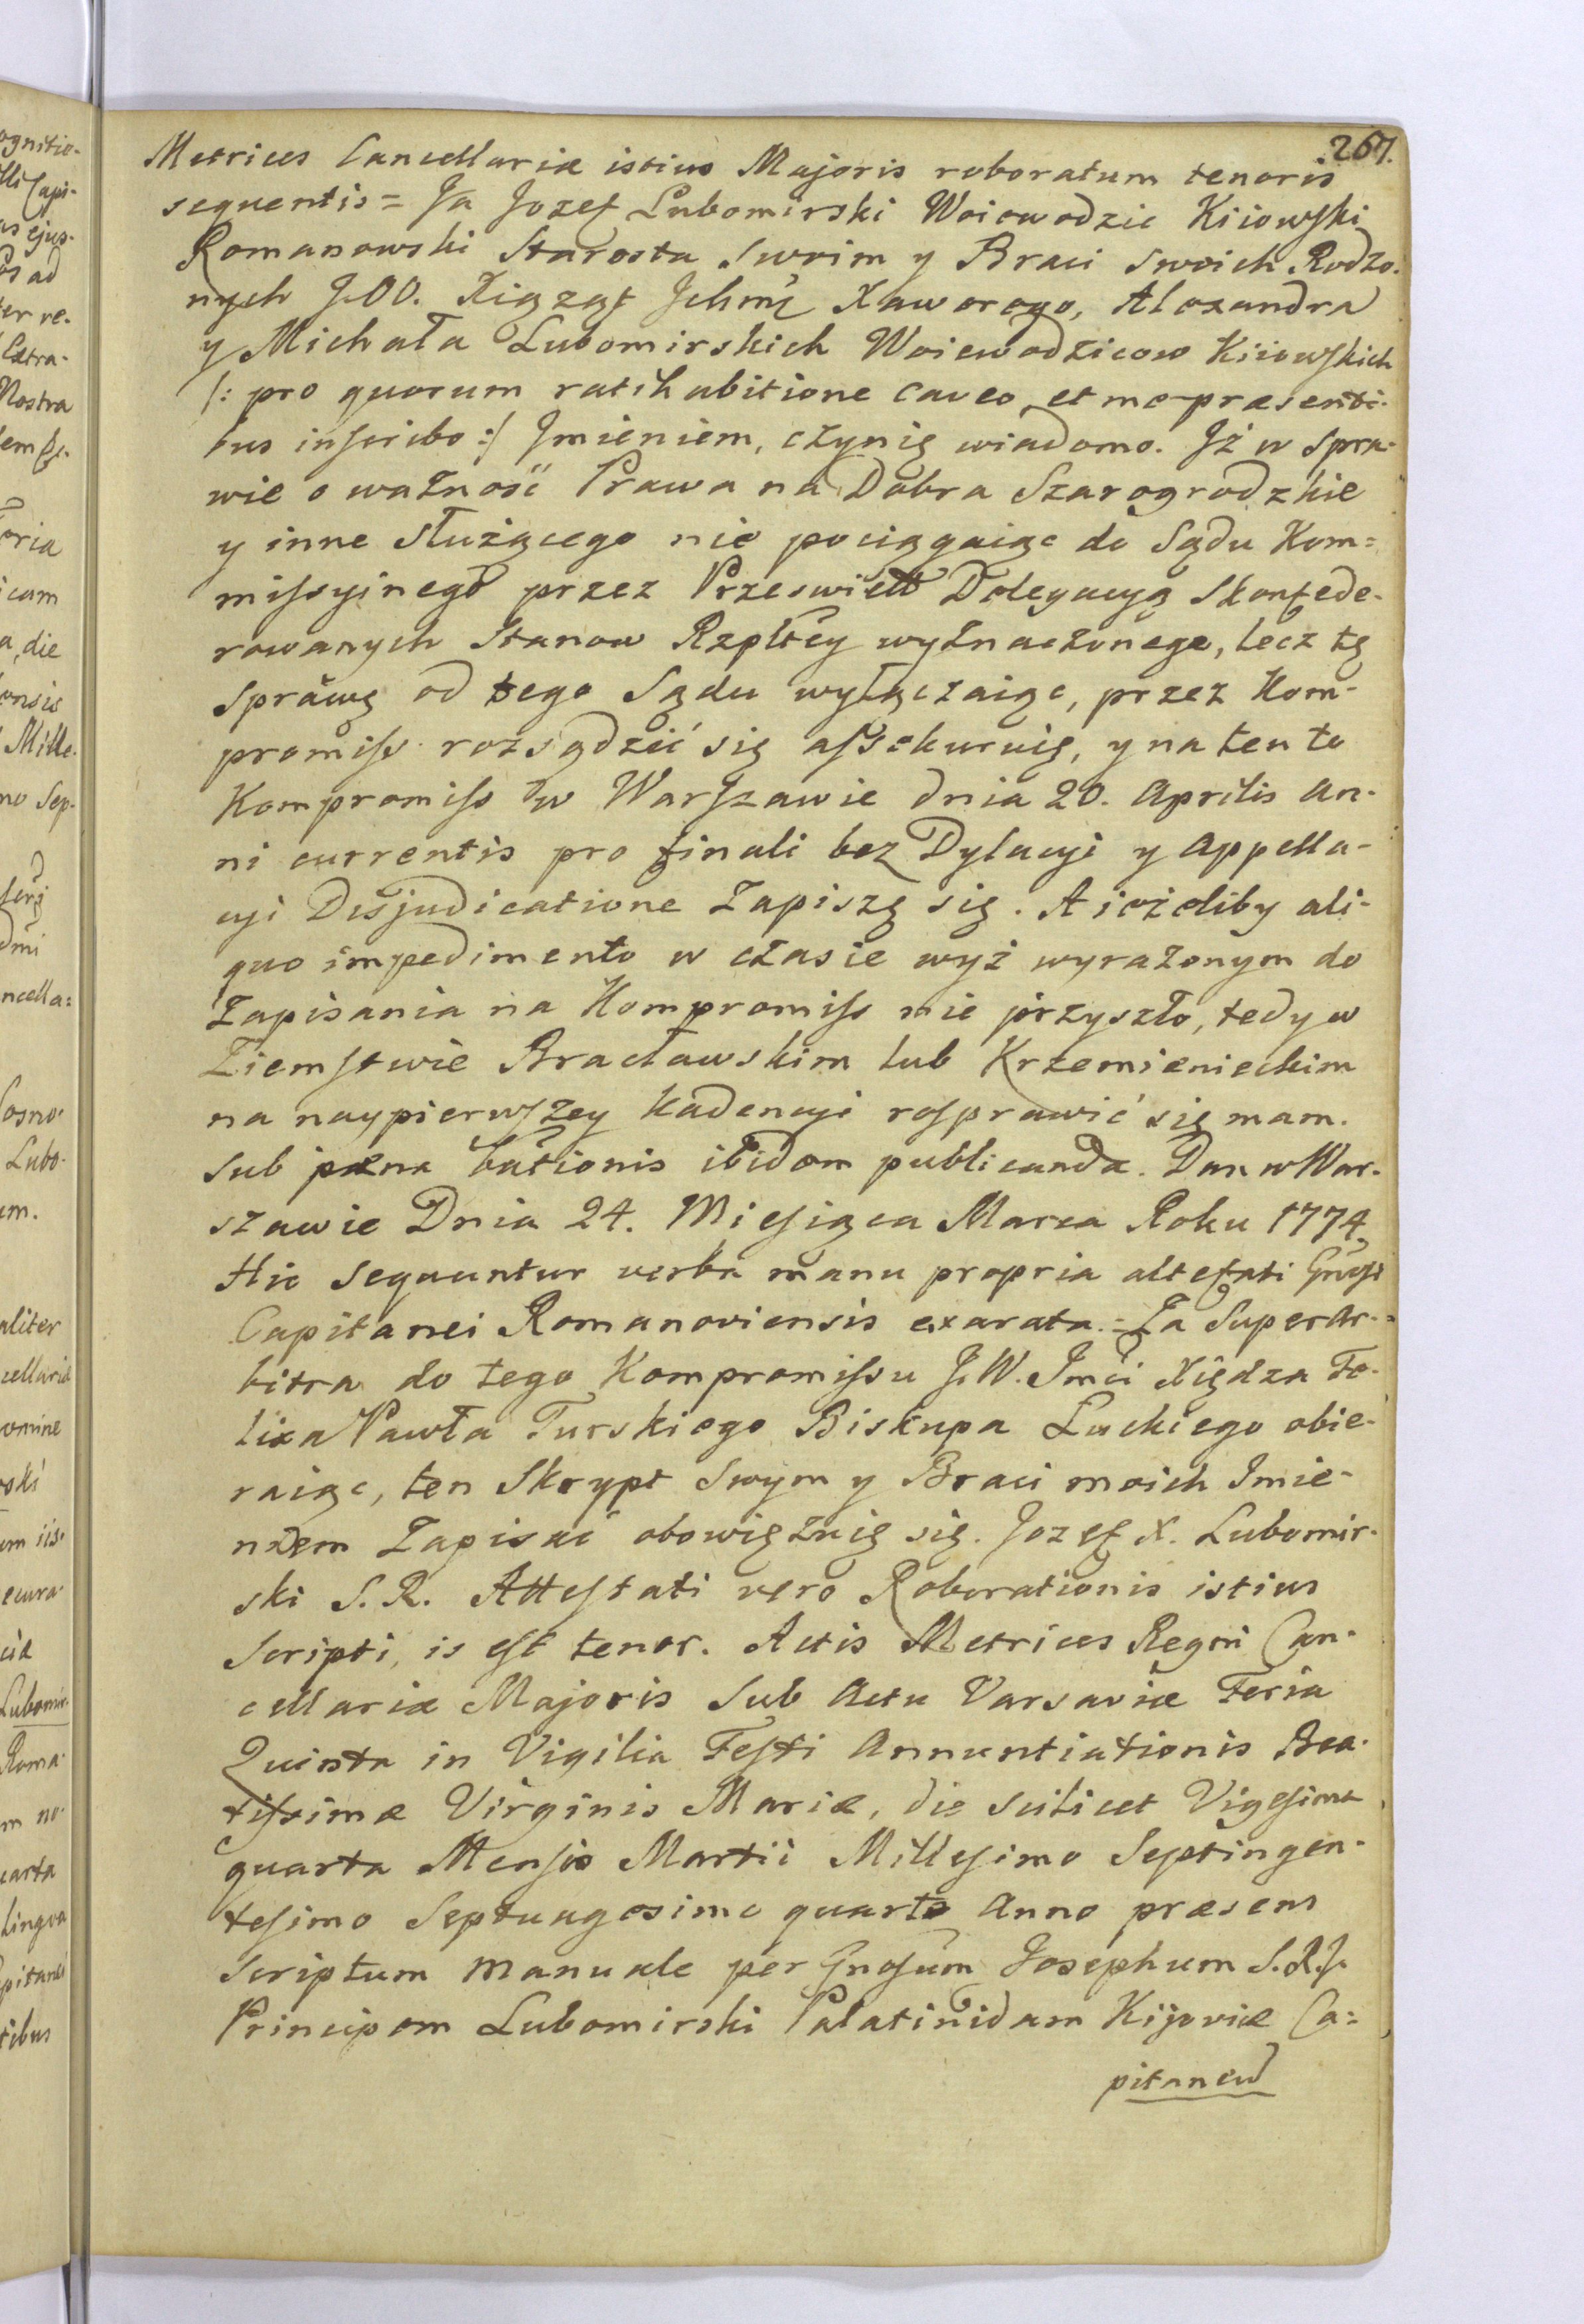 267.
Metrices Cancellariæ istius Majoris roboratum tenoris
sequentis = Ja Jozef Lubomirski Woiewodzic Kiiowski
Romanowski Starosta swoim y Braci swoich Rodzo-
nych J.OO. Xiążąt Jchmć Xawerego, Alexandra
y Michała Lubomirskich Woiewodzicow Kiiowskich
/: pro quorum ratihabitione caveo et me præsenti-
bus inscribo :/ Jmieniem, czynię wiadomo. Jż w spra-
wie o ważność Prawa na Dobra Szarogrodzkie
y inne służącego nie pociągaiąc do Sądu Kom=
missyinego przez Przeswiett Delegacyą Skonfede-
rowanych Stanow Rzpltey wyznaczonego, lecz tę
sprawę od tego Sądu wyłączaiąc, przez Kom-
promiss rozsądzić się assekuruię, y na ten to
Kompromiss w Warszawie dnia 20. Aprilis an-
ni currentis pro finali bez Dylacyi y appella-
cyi Disjudicatione Zapiszę się. A ieżeliby ali-
quo impedimento w czasie wyż wyrażonym do
Zapisania na Kompromiss nie przyszło, tedy w
Ziemstwie Bracławskim lub Krzemienieckim
na naypierwszey Kadencyi rosprawić się mam.
Sub pæna bãtionis ibidem publicanda. Dan w War-
szawie Dnia 24. Miesiąca Marca Roku 1774.
Hic sequuntur verba manu propria attestati Gnosi
Capitanei Romanoviensis exarata. = Za Superar-=
bitra do tego Kompromissu J.W. Jmci Xiędza Fe-
lixa Pawła Turskiego Biskupa Luckiego obie-
raiąc, ten Skrypt swym y Braci moich Jmie-
niem Zapisać obowięzuię się. Jozef X. Lubomir-
ski S.R. Attestati vero Roborationis istius
Scripti, is est tenor. Actis Metrices Regni Can-
cellariæ Majoris sub actu Varsaviæ Feria
Quinta in Vigilia Festi Annuntiationis Bea-
tissimæ Virginis Mariæ, die scilicet Vigesima
quarta Mensis Martii Millesimo Septingen-
tesimo Septuagesimo quarto Anno præsens
Scriptum manuale per Gnosum Josephum S.R.J.
Principem Lubomirski Palatinidam Kijoviæ Ca=
pitaneum